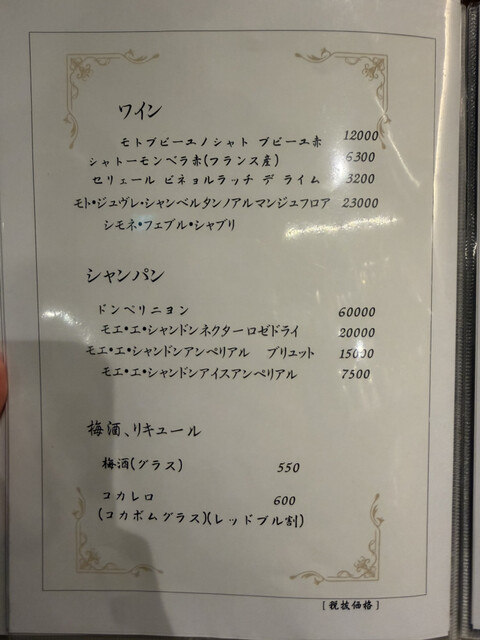 ワイン
モトブビーユノシャト ブビーユ赤 12000
シャトーモンペラ赤(フランス産) 6300
セリェール ピネョルラッチ デ ライム 3200
モト・ジュヴレ・シャンベルタンノアルマンジュフロア 23000
シモネ・フェブル・シャブリ
シャンパン
ドンペリニョン 60000
モエ・エ・シャンドンネクターロゼドライ 20000
モエ・エ・シャンドンアンペリアル ブリュット 15000
モエ・エ・シャンドンアイスアンペリアル 7500
梅酒、リキュール
梅酒(グラス) 550
コカレロ 600
(コカボムグラス)(レッドブル割)
[税抜価格]